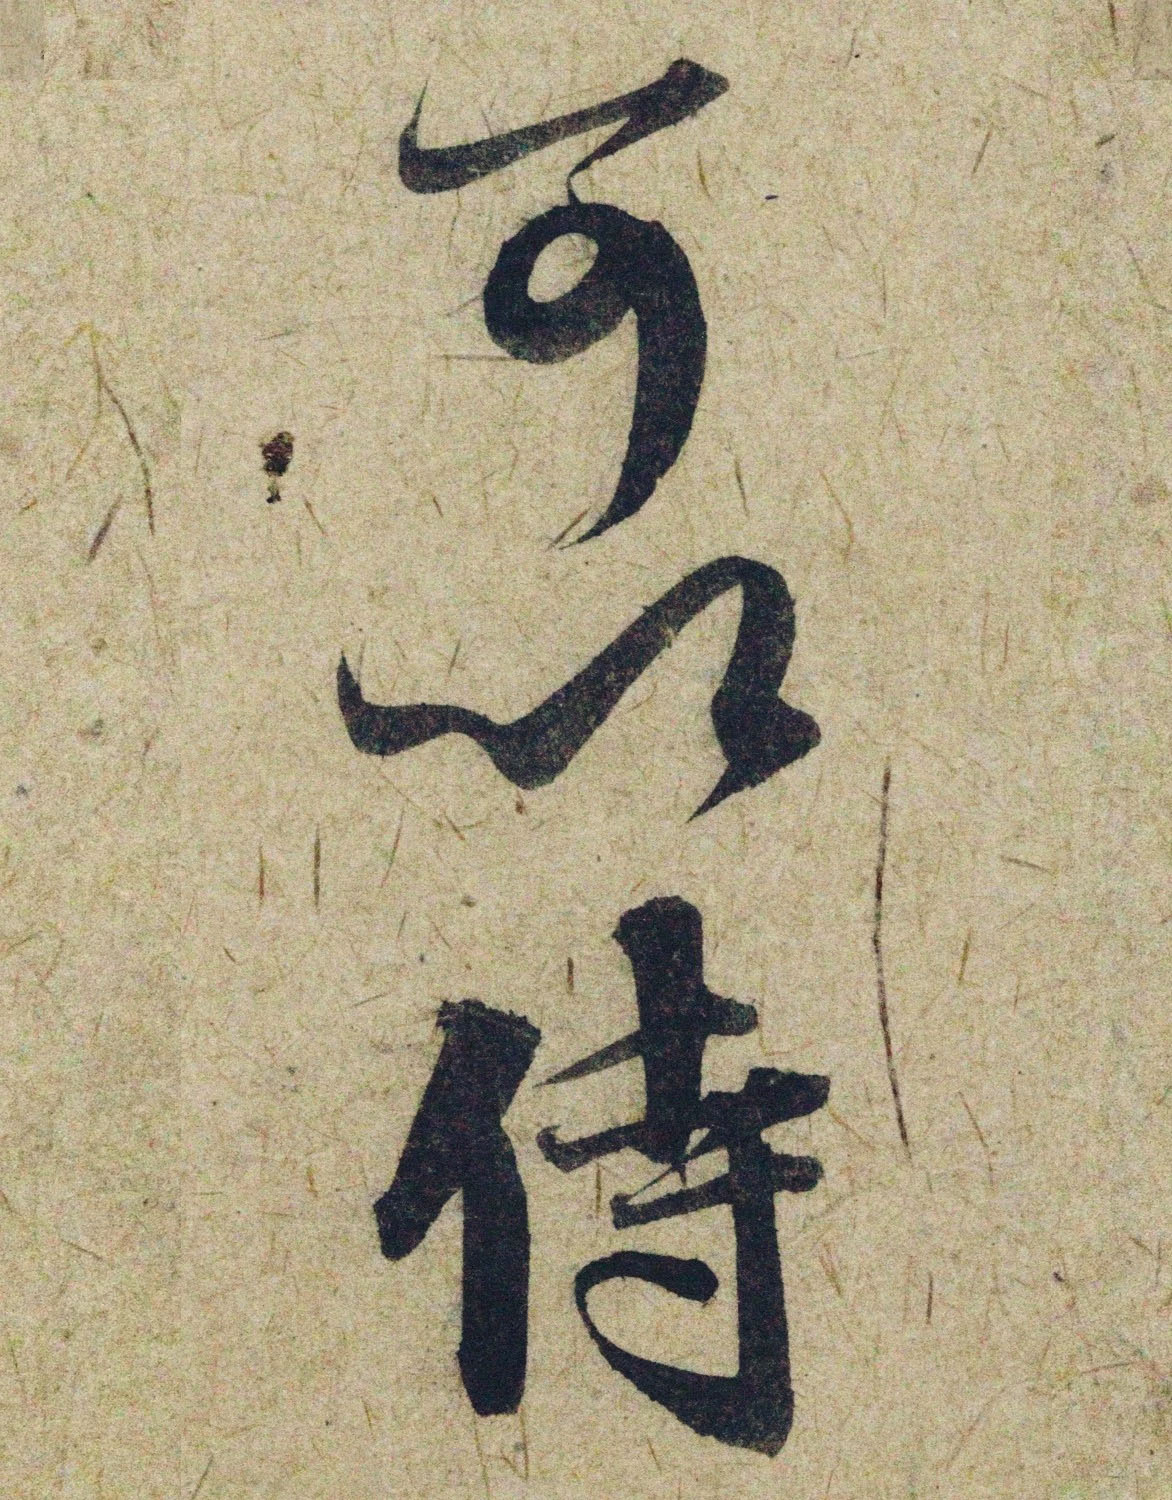 可以侍